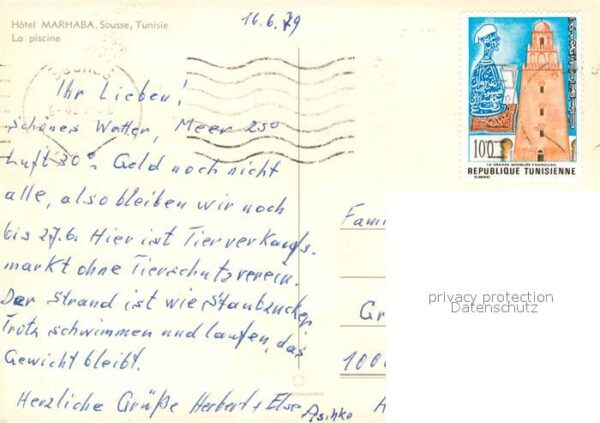 Hôtel MARHABA. Sousse, Tunisie
La piscine
16.6.79
Ihr Lieben!
schönes Wetter, Meer 25°
Luft 30°. Geld noch nicht
alle, also bleiben wir noch
bis 27.6. Hier ist Tierverkaufs-
markt ohne Tierschutzverein.
Der Strand ist wie Staubzucker
Trotz schwimmen und laufen, das
Gewicht bleibt.
Herzliche Grüße Herbert + Else
100
LA GRANDE MOSQUEE KAIROUAN
REPUBLIQUE TUNISIENNE
Fami
Gr
100
privacy protection
Datenschutz